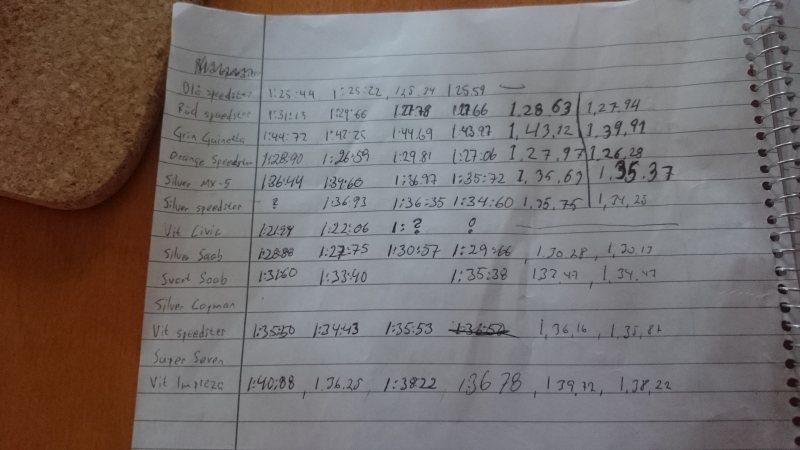 Blå speedster 1:25:44 1:25:22, 1,25,24 1,25,59
Röd speedster 1:31:13 1:29:66 1:27:78 1:28:66 1,28,63 1,27,94
Grön Gainetta 1:44:72 1:42:25 1:44,69 1:43,97 1,43,12 1,39,91
Orange Speedster 1:28:90 1:26:59 1:29,81 1:27:06 1,27,97 1,26,28
Silver MX-5 1:36:44 1:34:60 1:36,97 1:35:72 1,35,63 1,35,37
Silver speedster ? 1:36:93 1:36:35 1:34:60 1,35,75 1,34,25
Vit Civic 1:21:94 1:22:06 1:? ?
Silver Saab 1:28:88 1:27:75 1:30:57 1:29:66 1,30,28 1,30,13
Svart Saab 1:31:60 1:33:40 1:35:38 1,32,47 1,34,47
Silver Cayman
Vit speedster 1:35:50 1:34:43 1:35:53 1:36:52 1,36,16 1,35,87
Super Seven
Vit Impreza 1:40:88 1,36,25 1:38:22 1:36 78 1,39,72 1,38,22